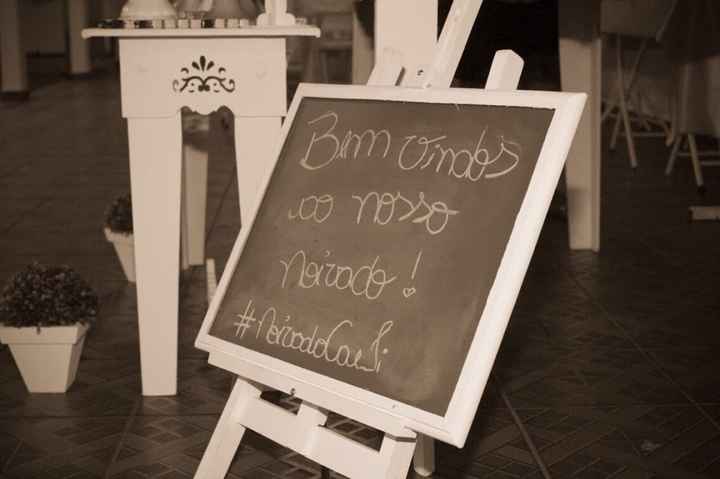 Bem Vindos
ao nosso
Noivado!
#NoivadoCaeLi